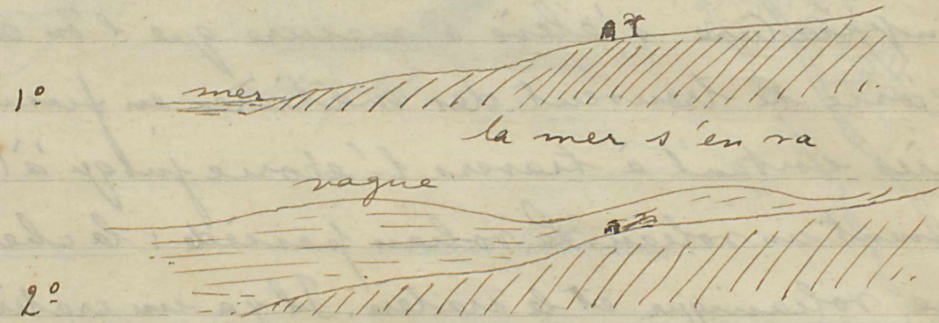 1º
mer
la mer s'en va
vague
2º